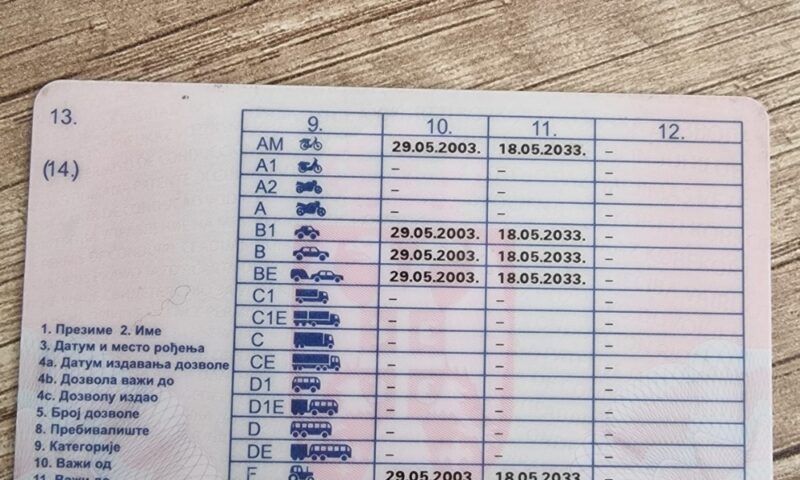 13.
(14.)
9. 10. 11. 12.
AM 29.05.2003. 18.05.2033. –
A1 – – –
A2 – – –
A – – –
B1 29.05.2003. 18.05.2033. –
B 29.05.2003. 18.05.2033. –
BE 29.05.2003. 18.05.2033. –
C1 – – –
C1E – – –
C – – –
CE – – –
D1 – – –
D1E – – –
D – – –
DE – – –
F 29.05.2003. 18.05.2033. –
1. Презиме 2. Име
3. Датум и место рођења
4a. Датум издавања дозволе
4b. Дозвола важи до
4c. Дозволу издао
5. Број дозволе
8. Пребивалиште
9. Категорије
10. Важи од
11. Важи до